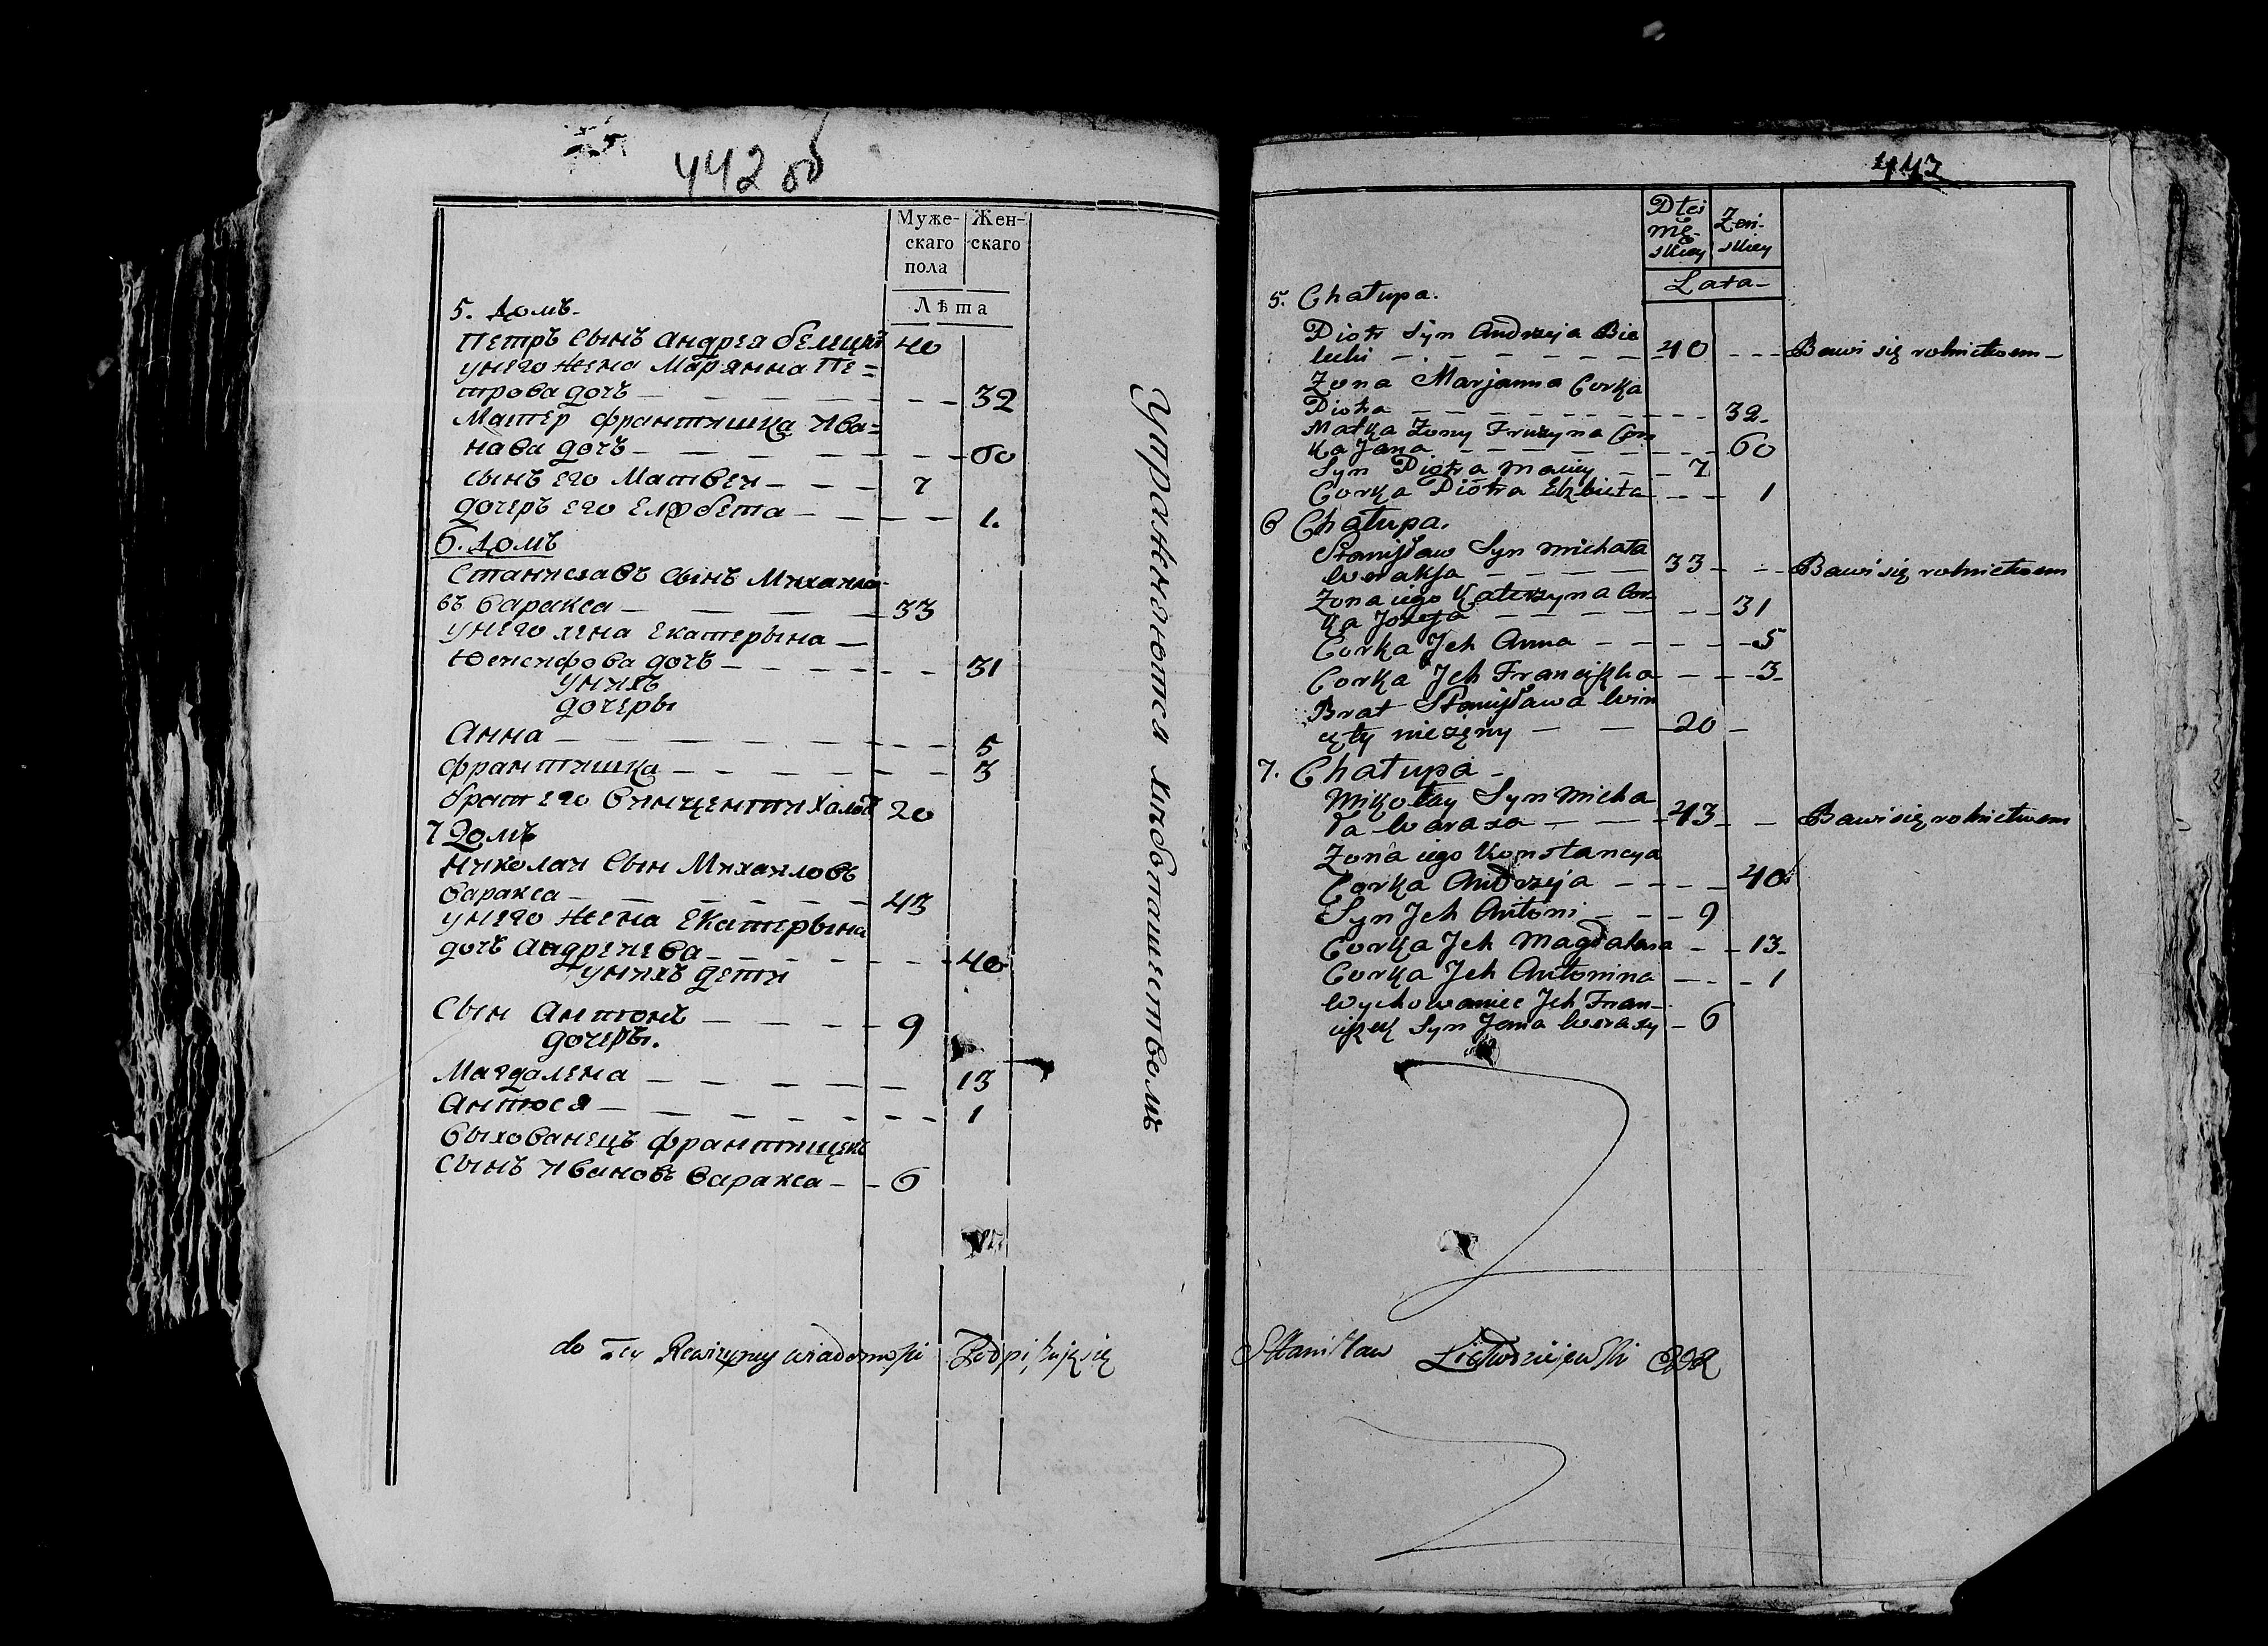 442 об
Муже-
скаго
пола
Жен-
скаго
Лѣта
5. Домъ.
Петръ Сынъ Андрея Белецкі 40
унего жена Марянна Пе=
трова дочъ — — — — 32
Матер франтишка Ива=
нава дочъ — — — — 60
сынъ его Матвеи — — — 7
дочеръ его Елзбета — — — 1.
6. Домъ
Станиславъ Сынъ Михаило-
въВаракса — — — 33
унего жена Екатерына —
Юенсифова дочъ — — — 31
унихъ
дочеры
Анна — — — — 5
франтишка — — — — 3
братъ его Винцентти Халостъ 20
7 Домъ
Николаи Сын Михаиловъ
Варакса — — — 43
унего жена Екатерына
дочъ Андреиева — — — 40
унихъ дети
Сын Антонъ — — — 9
дочеры.
Магдалена — — — — 13
Антося — — — — 1
Выхованецъ франтишекъ
сынъ Ивановъ Варакса — — 6
Упражнеются хлѣбопашествомъ
do tey Rewizyiney wiadomości Podpisuję się
443
Płci
mę-
skiey
Żeń-
skiey
Lata
5. Chałupa.
Piotr Syn Andrzeja Bie
lecki — — — — 40 — — Bawi się rolnictwem —
Zona Marjanna Corka
Piotra — — — — 32
Matka Zony Fruzyna Cor
ka Jana — — — — 60
Syn Piotra Maciey — — 7
Corka Piotra Elzbieta — — 1
6 Chałupa.
Stanisław Syn Michała
Woraksa — — — — 33 — — Bawi się rolnictwem
Zona iego Katerzyna Cor
ka Jozefa — — — — 31
Corka Jch Anna — — — — 5
Corka Jch Franciszka — — — 3
Brat Stanisława Win
cęty nieżęny — — — 20 —
7. Chałupa —
Mikołay Syn Micha
ła Waraxa — — — 43 — — Bawi się rolnictwem
Zona iego Konstancya
Corka Andrzeja — — — — 40
Syn Jch Antoni — — — 9
Corka Jch Magdalena — — 13
Corka Jch Antonina — — — 1
Wychowaniec Jch Fran-
ciszek Syn Jana Woraxy — 6
Stanisław